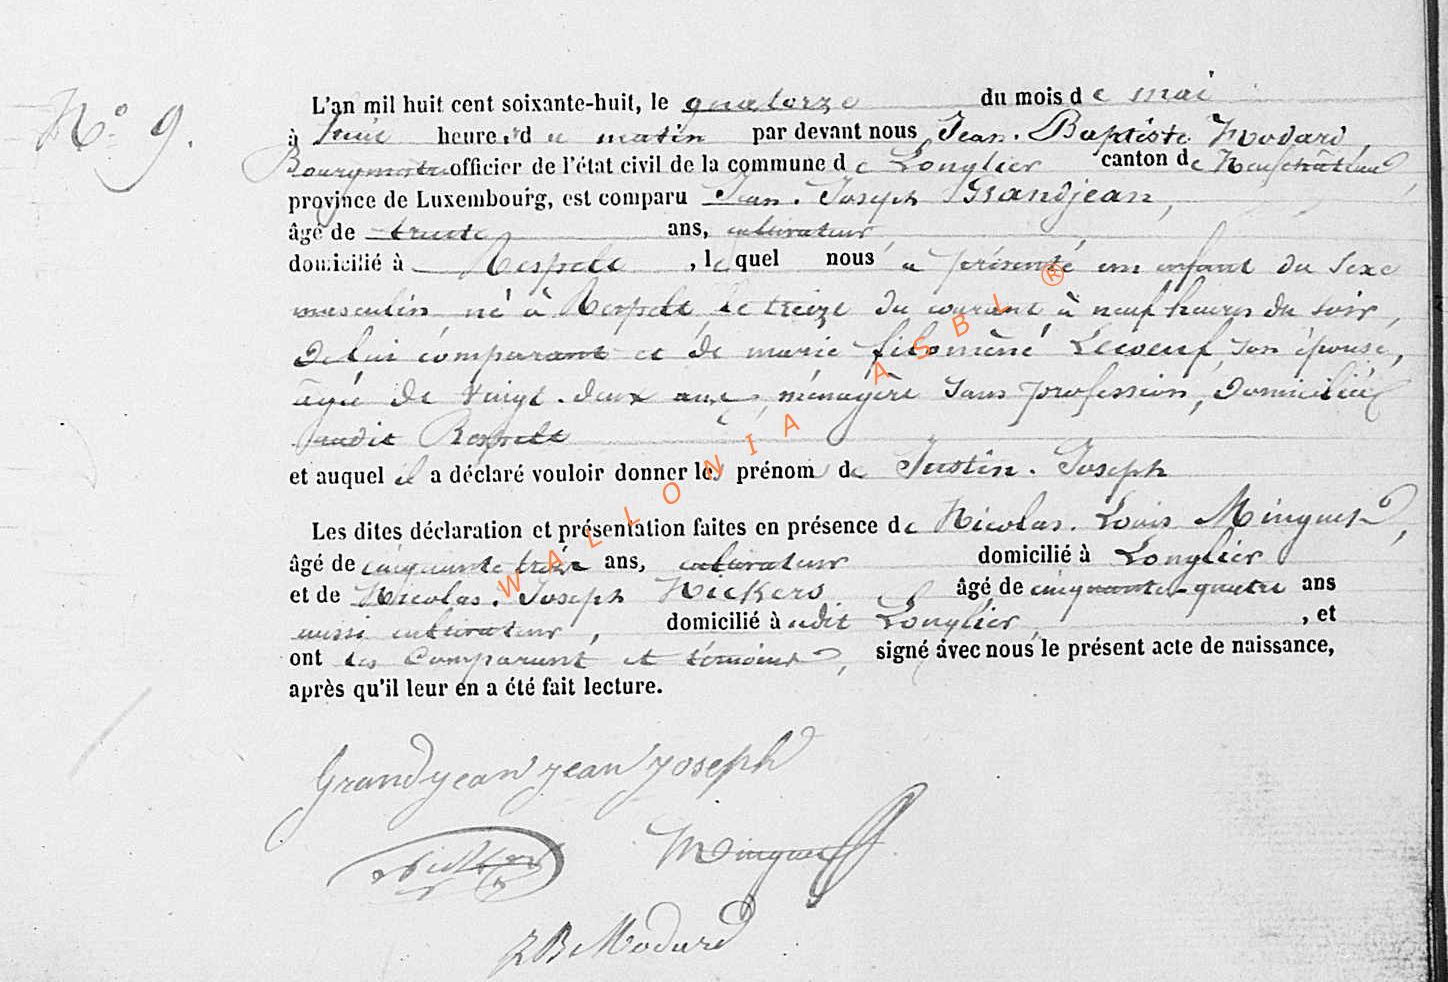 N° 9.
L'an mil huit cent soixante-huit, le quatorze du mois de mai
à huit heures du matin par devant nous Jean-Baptiste Modard,
Bourgmestre officier de l'état civil de la commune de Longlier canton de Neufchâteau,
province de Luxembourg, est comparu Jean-Joseph Grandjean,
âgé de trente ans, cultivateur,
domicilié à Respelt, lequel nous a présenté un enfant du sexe
masculin né à Respelt le treize du courant à neuf heures du soir,
de lui comparant et de marie filoméné Lecoeuf son épouse,
âgée de vingt-deux ans, ménagère sans profession, domiciliée
audit Respelt
et auquel il a déclaré vouloir donner les prénom de Justin-Joseph
Les dites déclaration et présentation faites en présence de Nicolas-Louis Minguet,
âgé de cinquante trois ans, cultivateur domicilié à Longlier
et de Nicolas-Joseph Hickers âgé de cinquante-quatre ans
aussi cultivateur, domicilié à udit Longlier, et
ont les comparant et témoins, signé avec nous le présent acte de naissance,
après qu'il leur en a été fait lecture.
Grandjean jean joseph
Minguet
JB Modard
WALLONIA ASBL ®